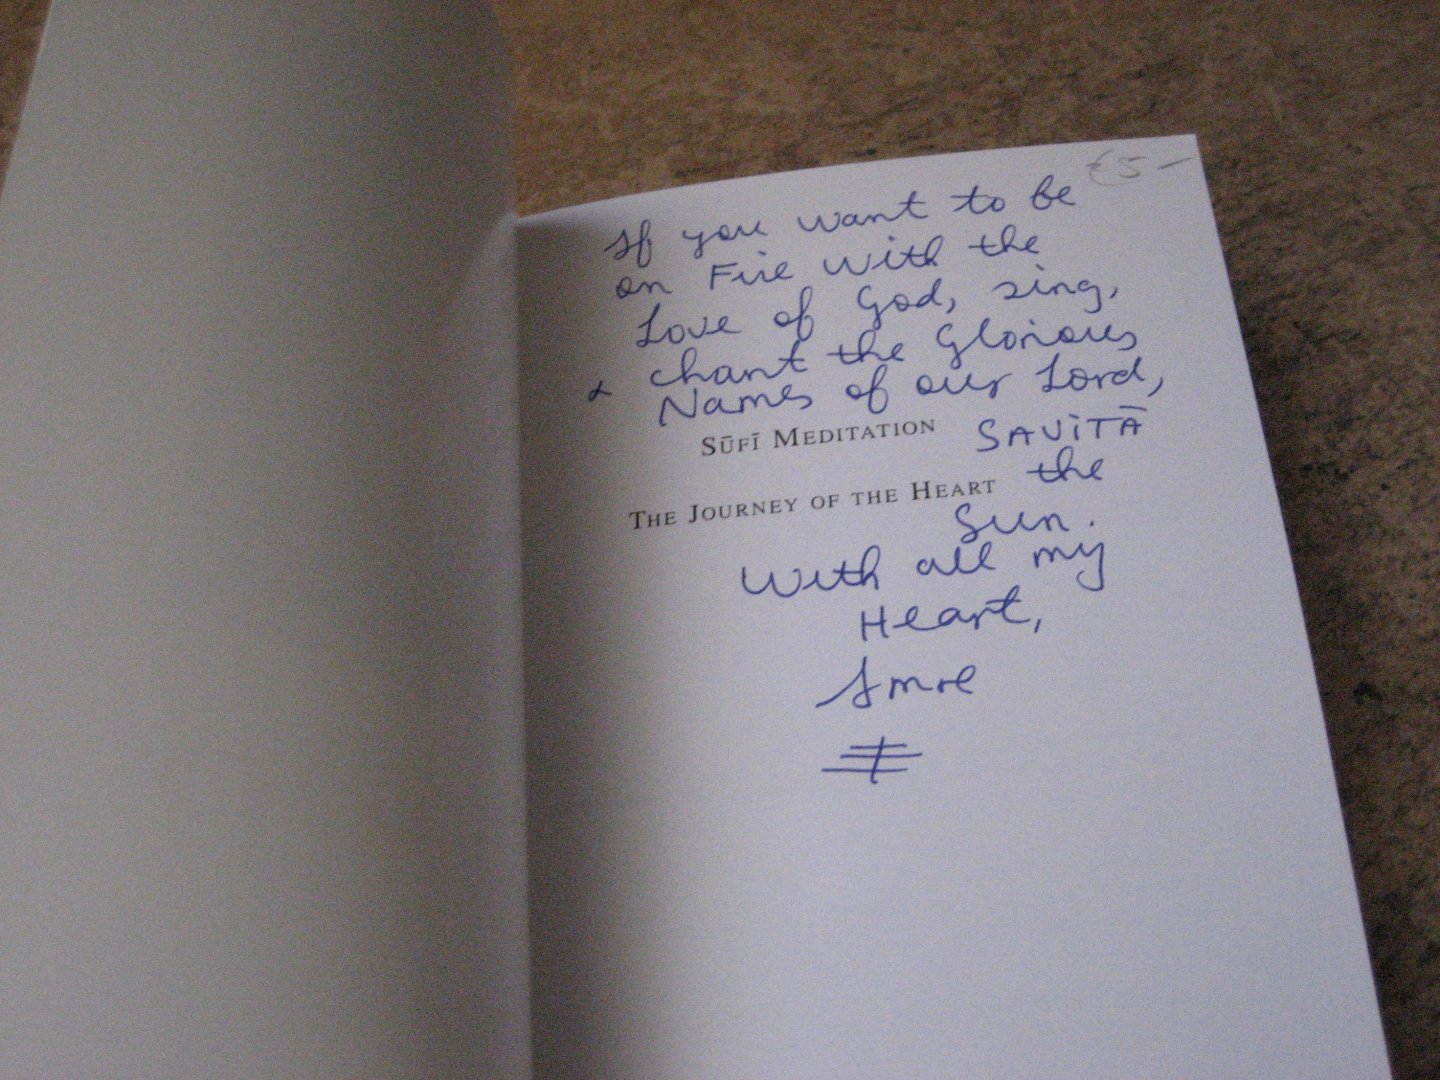 €5 –
If you want to be
on Fire with the
Love of God, sing,
& chant the Glorious
Names of our Lord,
SAVITĀ
SŪFĪ MEDITATION
the
THE JOURNEY OF THE HEART
Sun.
With all my
Heart,